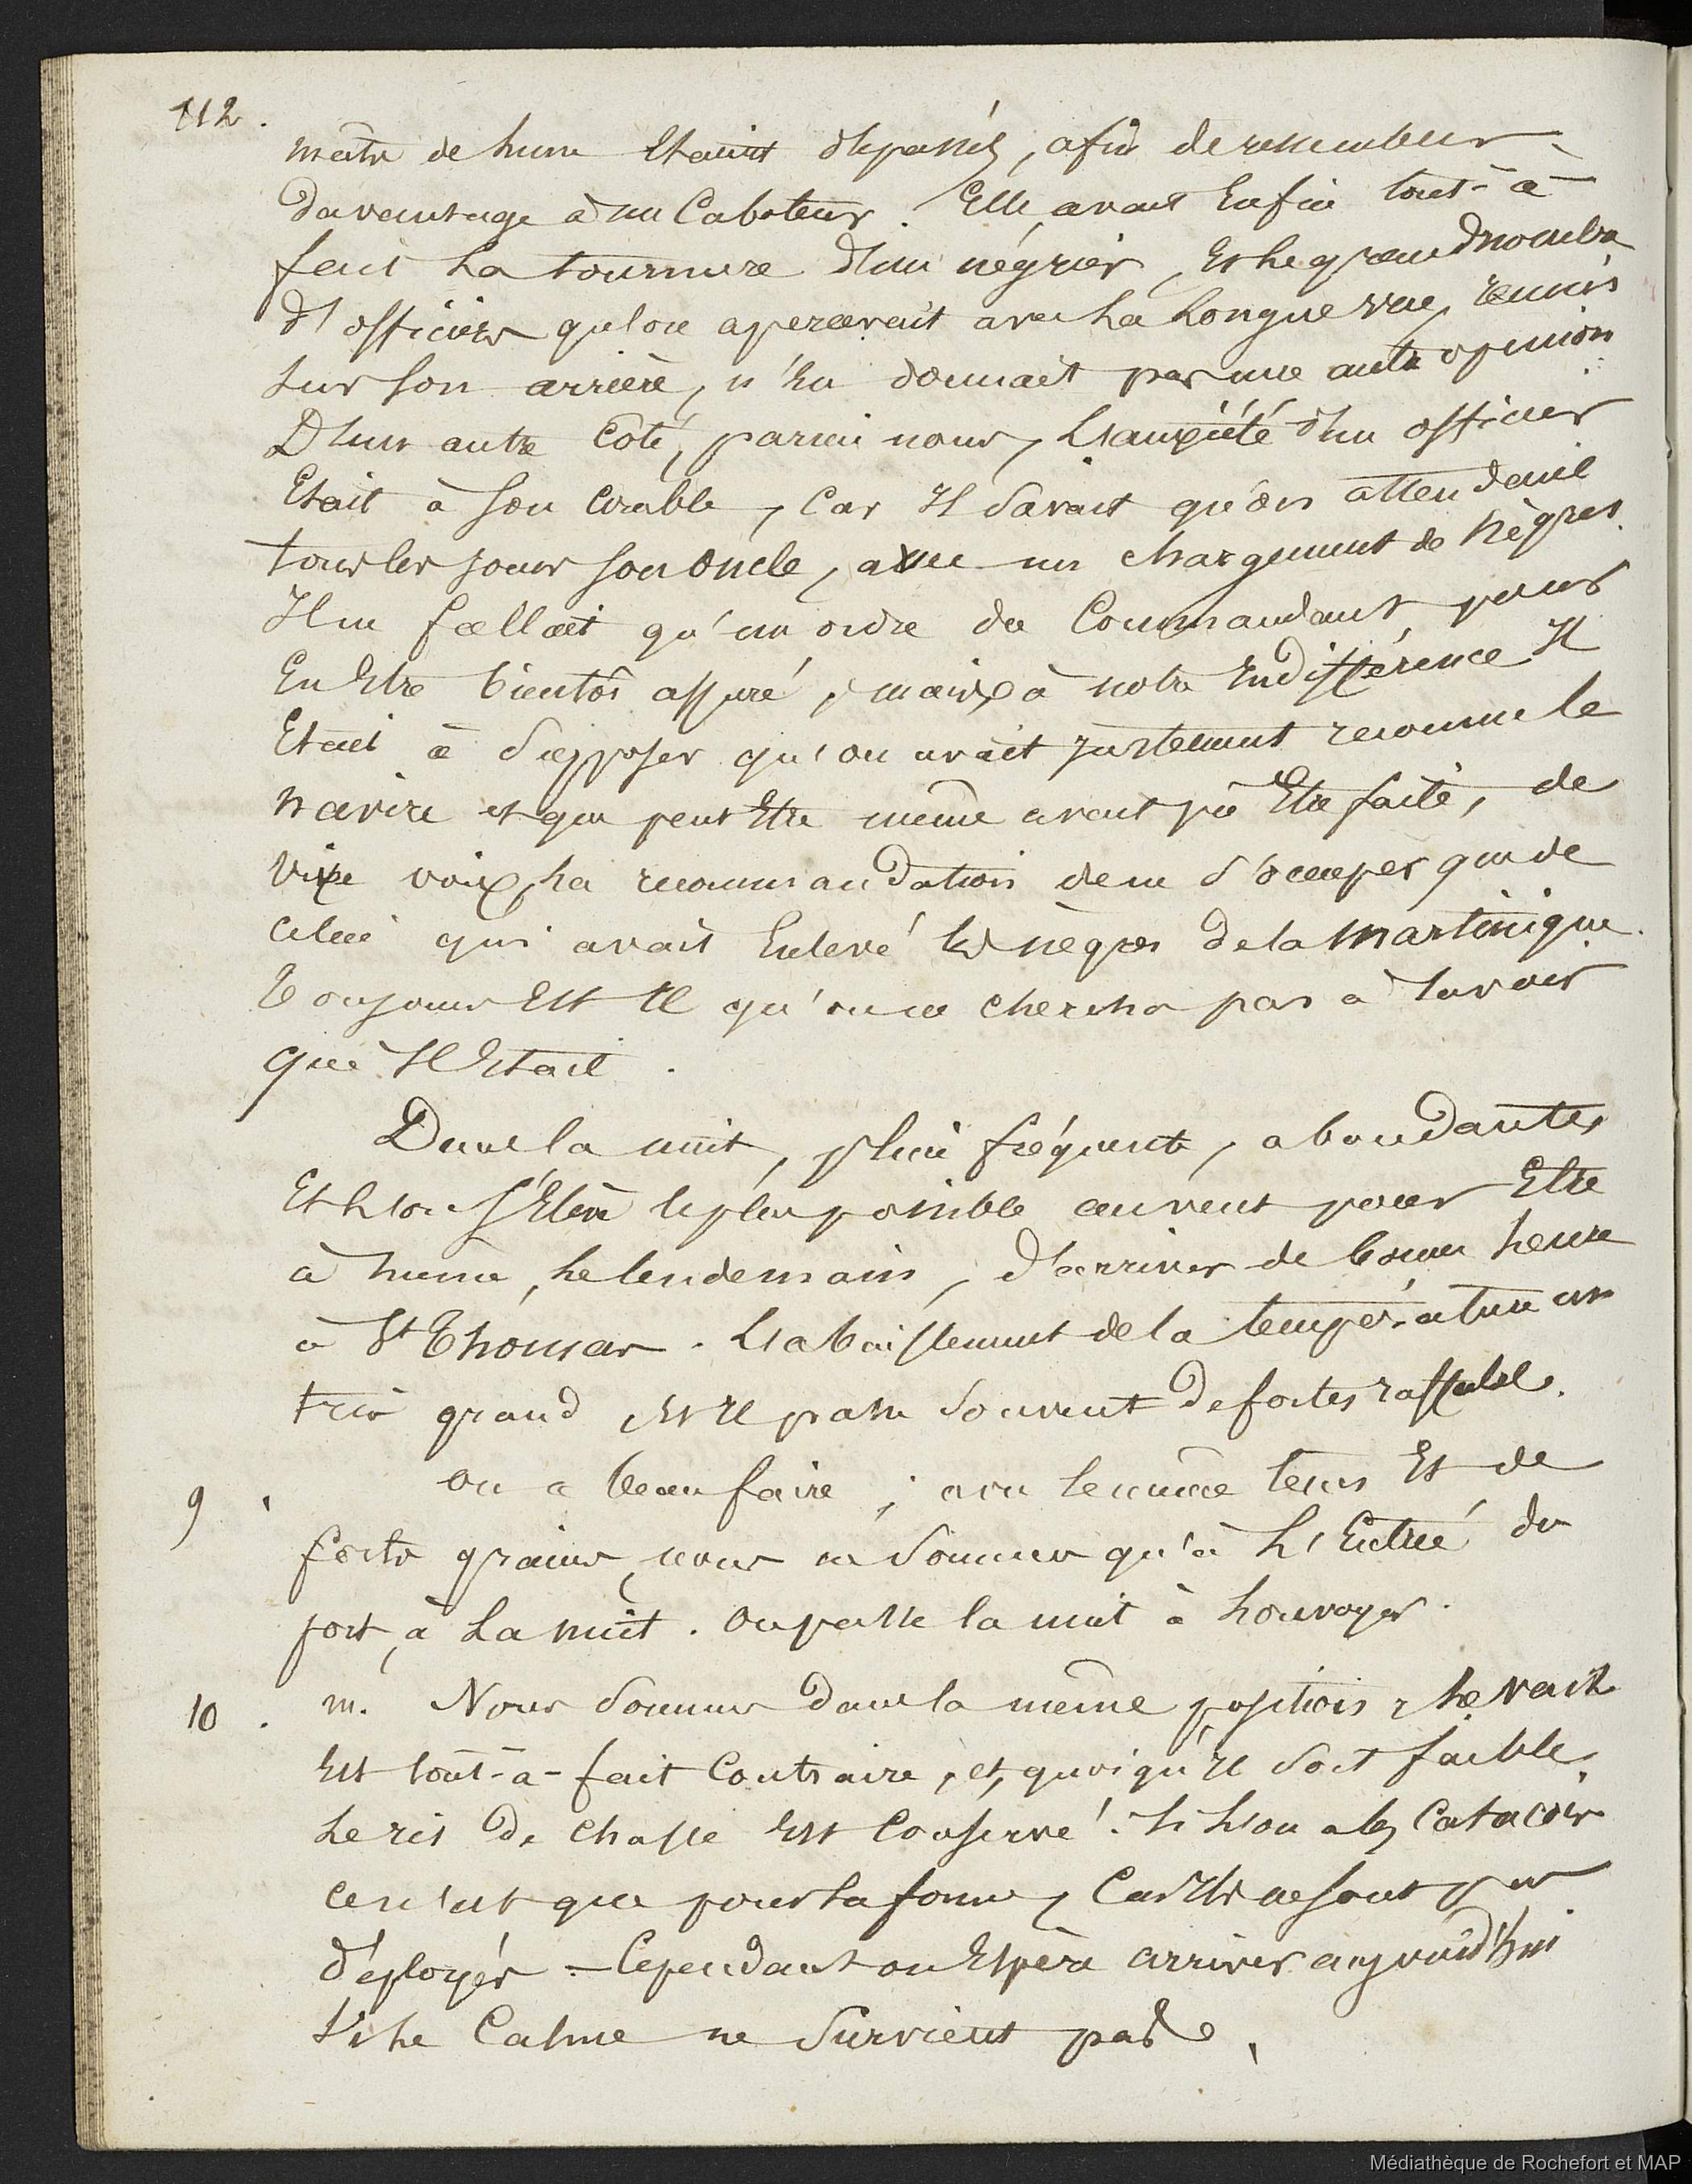 112.
mâts de hune étaient dépassés, afin de ressembler
davantage à un Caboteur. Elle avait Enfin tout-à-
fait La tournure d'un négrier, Et le grand nombre
d'officiers qu'on apercevait avec La Longue vue, réunis
sur son arrière, n'En donnait pas une autre opinion.
D'un autre Côté, parmi nous, L'anxiété d'un officier
Etait à son Comble, Car Il savait qu'on attendait
tous les jours son oncle, avec un chargement de Nègres.
Il ne fallait qu'un ordre du Commandant, pour
En Etre bientôt assuré, mais à notre Indifférence Il
Etait à supposer qu'on avait justement reconnu le
navire et que peut Etre même avait pu Etre faite, de
vive voix, la recommandation de ne s'occuper que de
celui qui avait Enlevé les nègres de la Martinique.
Toujours Est Il qu'on ne chercha pas à savoir
qui Il Etait.
Dans la nuit, pluie fréquente, abondante,
Et L'on s'Elève le plus possible au vent pour Etre
à même, le lendemain, d'arriver de bonne heure
à St Thomas. L'abaissement de la température est
très grand Et Il passe souvent de fortes raffales.
9. on a beau faire; avec le même tems Et de
forts grains, nous ne sommes qu'à L'Entrée du
port, à La nuit. on passe la nuit à Louvoyer.
10. m. Nous sommes dans la même position, Le vent
Est tout-à-fait Contraire, et, quoiqu'Il soit faible,
Le ris de chasse Est Conservé. Si L'on a les Catacois
ce n'est que pour la forme, Car Ils ne sont pas
déployés. - Cependant on Espère arriver aujourd'hui
si le Calme ne survient pas.
Médiathèque de Rochefort et MAP